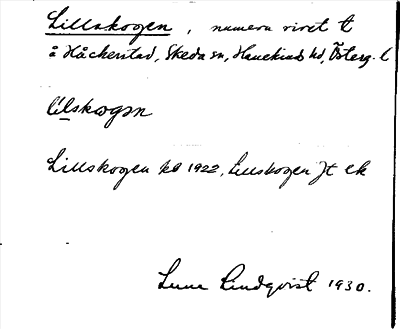 Lillskogen, numera rivet t
å Håckerstad, Skeda sn, Hanekinds hd, Österg. l
lilskogən
Lillskogen kb 1922, Lillskogen Jt ek
Sune Lindqvist 1930.